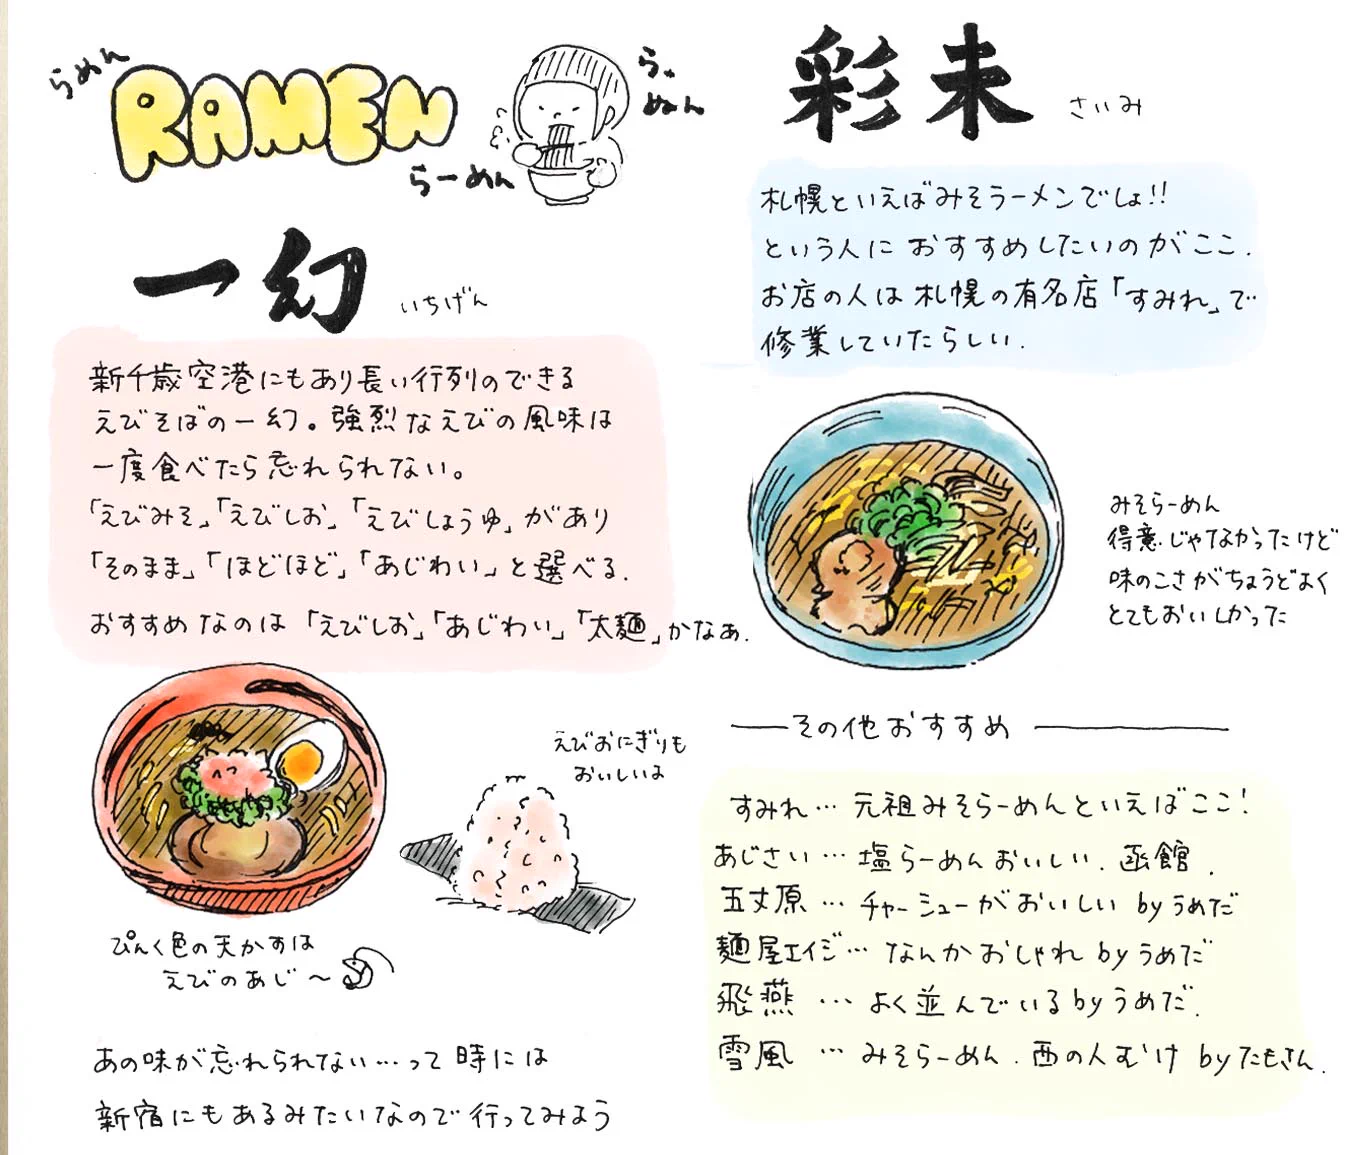 らめん
RAMEN
らぁ
めん
らーめん
一幻 いちげん
新千歳空港にもあり長い行列のできる
えびそばの一幻。強烈なえびの風味は
一度食べたら忘れられない。
「えびみそ」「えびしお」「えびしょうゆ」があり
「そのまま」「ほどほど」「あじわい」と選べる.
おすすめなのは「えびしお」「あじわい」「太麺」かなぁ.
えびおにぎりも
おいしいよ
ぴんく色の天かすは
えびのあじ〜
あの味が忘れられない…って時には
新宿にもあるみたいなので行ってみよう
彩未 さいみ
札幌といえばみそラーメンでしょ!!
という人におすすめしたいのがここ.
お店の人は札幌の有名店「すみれ」で
修業していたらしい.
みそらーめん
得意じゃなかったけど
味のこさがちょうどよく
とてもおいしかった
その他おすすめ
すみれ… 元祖みそらーめんといえばここ!
あじさい… 塩らーめんおいしい. 函館.
五丈原 … チャーシューがおいしい byうめだ
麺屋エイジ… なんかおしゃれ byうめだ
飛燕 … よく並んでいる byうめだ.
雪風 … みそらーめん. 西の人むけ byたもさん.